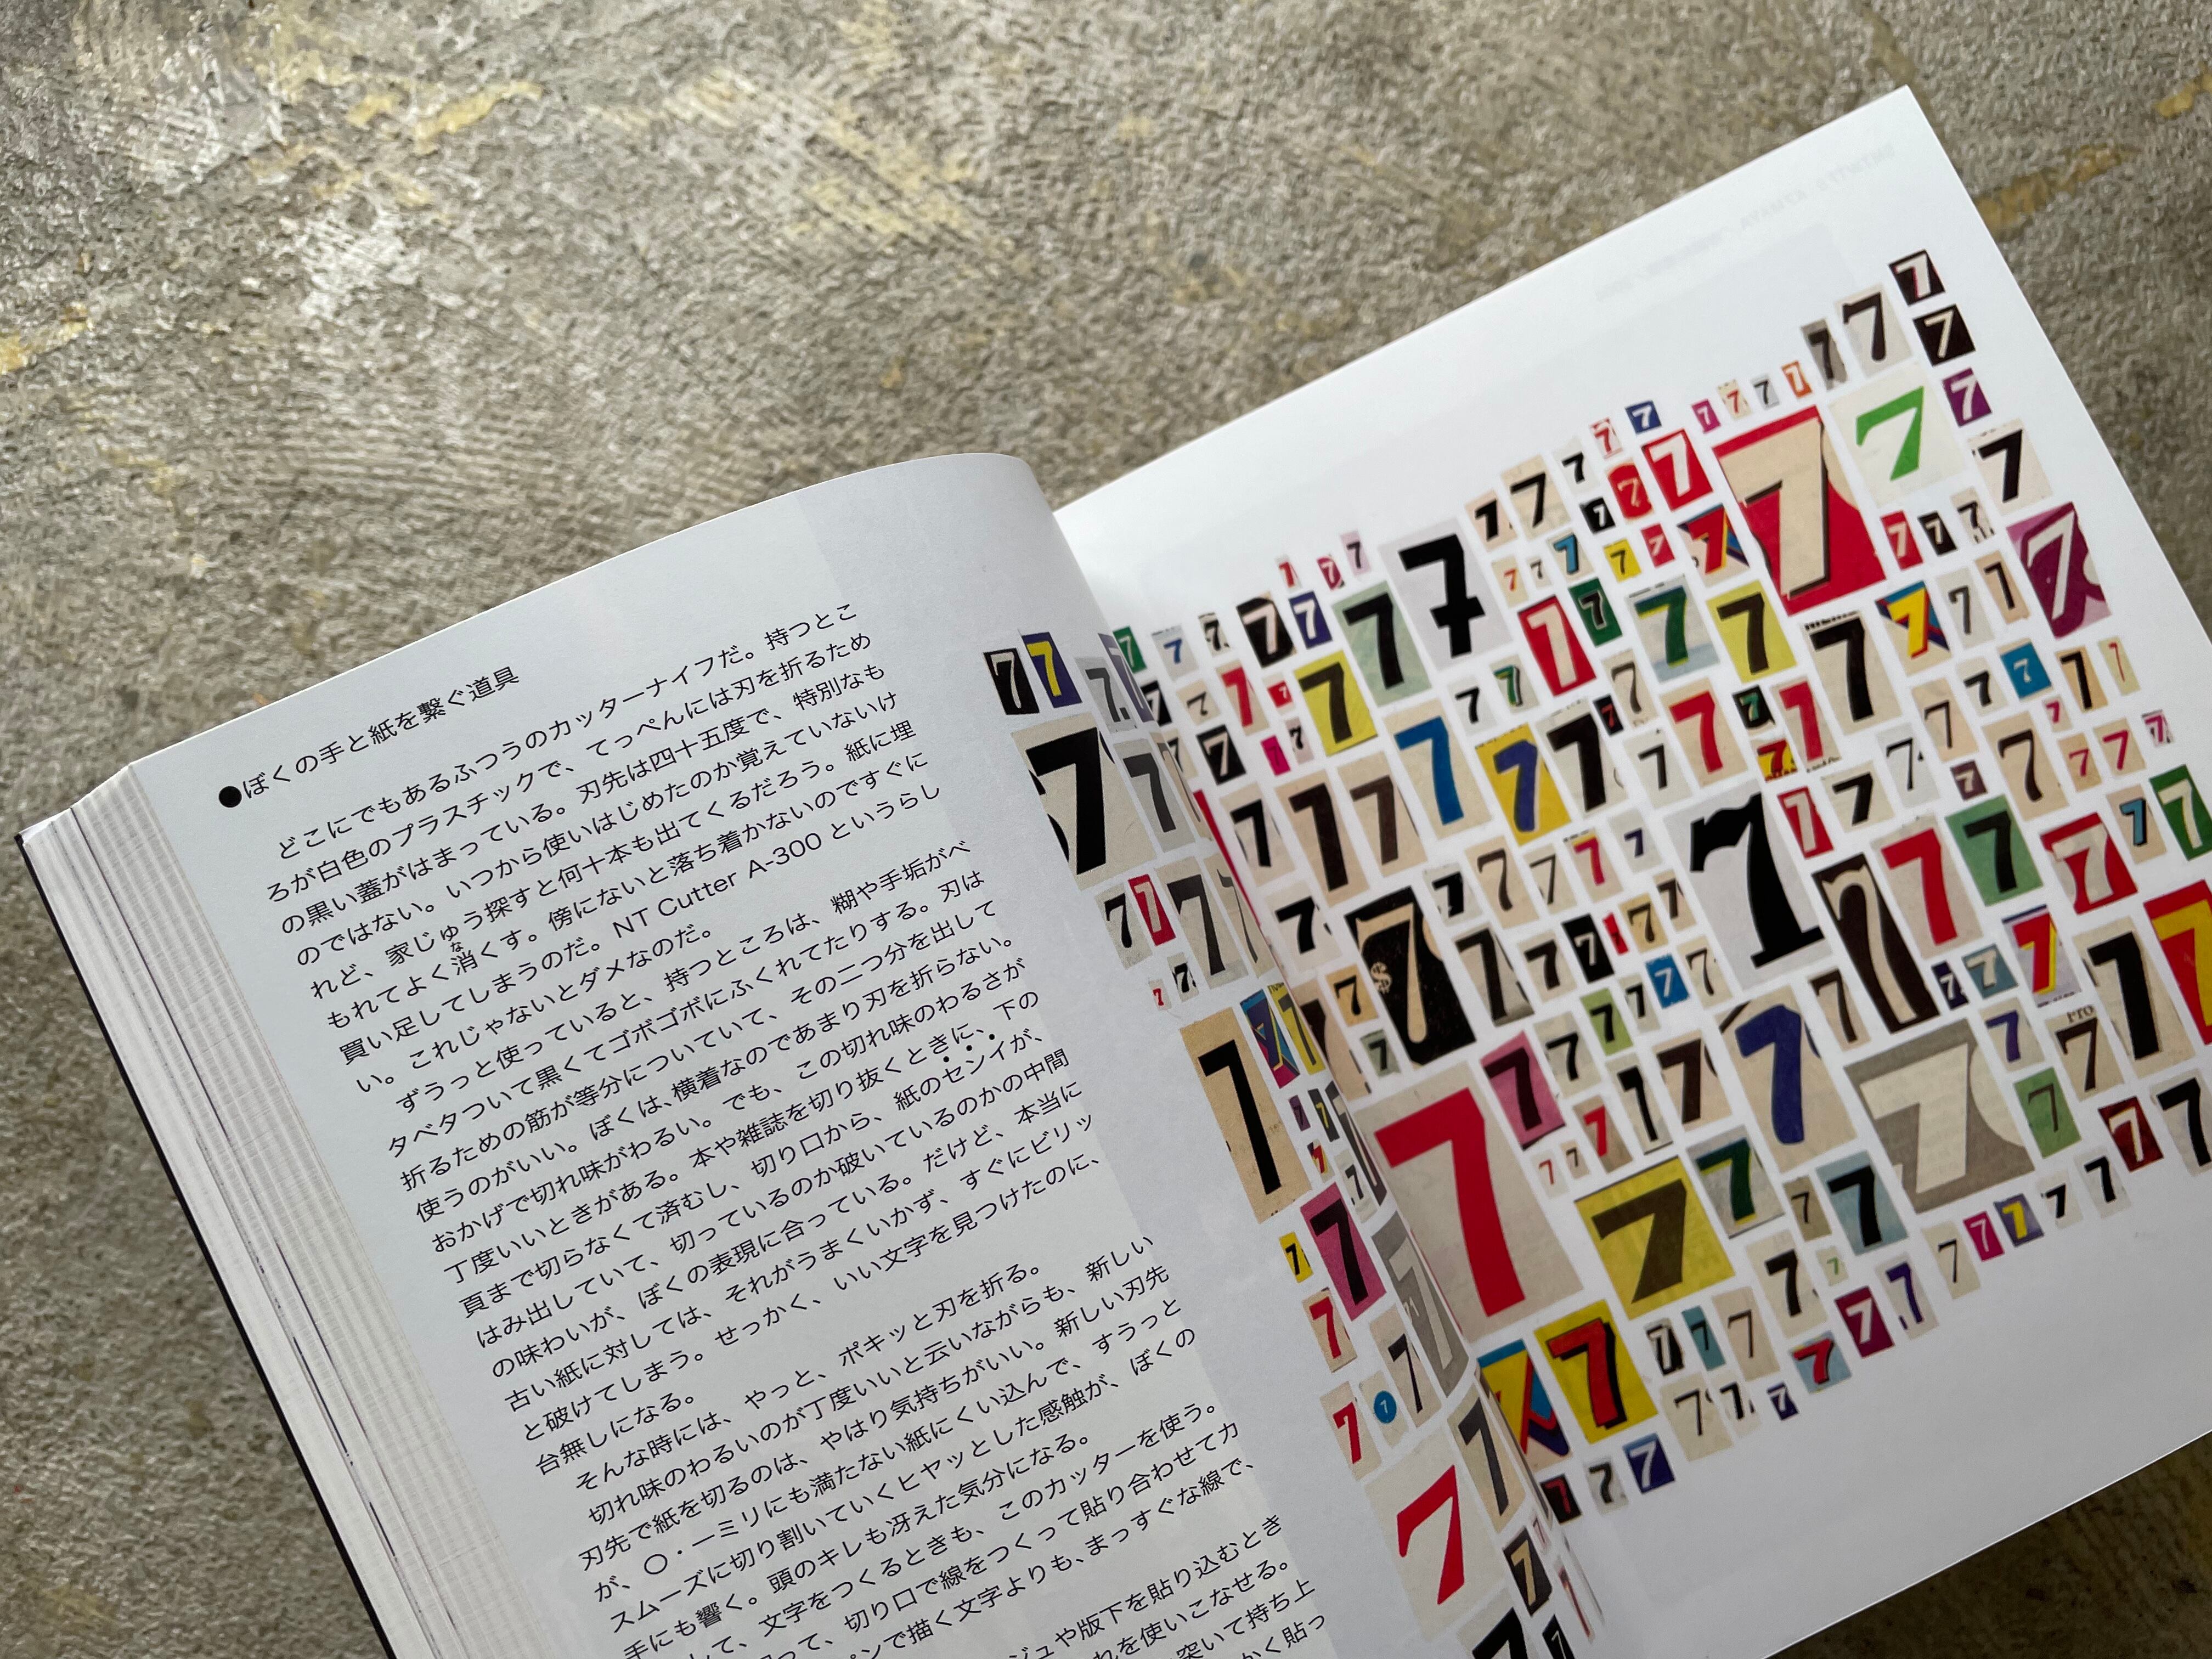 ●ぼくの手と紙を繋ぐ道具
どこにでもあるふつうのカッターナイフだ。持つとこ
ろが白色のプラスチックで、てっぺんには刃を折るため
の黒い蓋がはまっている。刃先は四十五度で、特別なも
のではない。いつから使いはじめたのか覚えていないけ
れど、家じゅう探すと何十本も出てくるだろう。紙に埋
もれてよく消くす。傍にないと落ち着かないのですぐに
買い足してしまうのだ。NT Cutter A-300 というらし
い。これじゃないとダメなのだ。
ずうっと使っていると、持つところは、糊や手垢がベ
タベタついて黒くてゴボゴボにふくれてたりする。刃は
折るための筋が等分についていて、その二つ分を出して
使うのがいい。ぼくは、横着なのであまり刃を折らない。
おかげで切れ味がわるい。でも、この切れ味のわるさが
丁度いいときがある。本や雑誌を切り抜くときに、下の
頁まで切らなくて済むし、切り口から、紙のセンイが、
はみ出していて、切っているのか破いているのかの中間
の味わいが、ぼくの表現に合っている。だけど、本当に
古い紙に対しては、それがうまくいかず、すぐにビリッ
と破けてしまう。せっかく、いい文字を見つけたのに、
台無しになる。
そんな時には、やっと、ポキッと刃を折る。
切れ味のわるいのが丁度いいと云いながらも、新しい
刃先で紙を切るのは、やはり気持ちがいい。新しい刃先
が、〇・一ミリにも満たない紙にくい込んで、すうっと
スムーズに切り割いていくヒヤッとした感触が、ぼくの
手にも響く。頭のキレも冴えた気分になる。
して、文字をつくるときも、このカッターを使う。
って、切り口で線をつくって貼り合わせてカ
ンで描く文字よりも、まっすぐな線で、
ジュや版下を貼り込むとき
れを使いこなせる。
突いて持ち上
かく貼っ